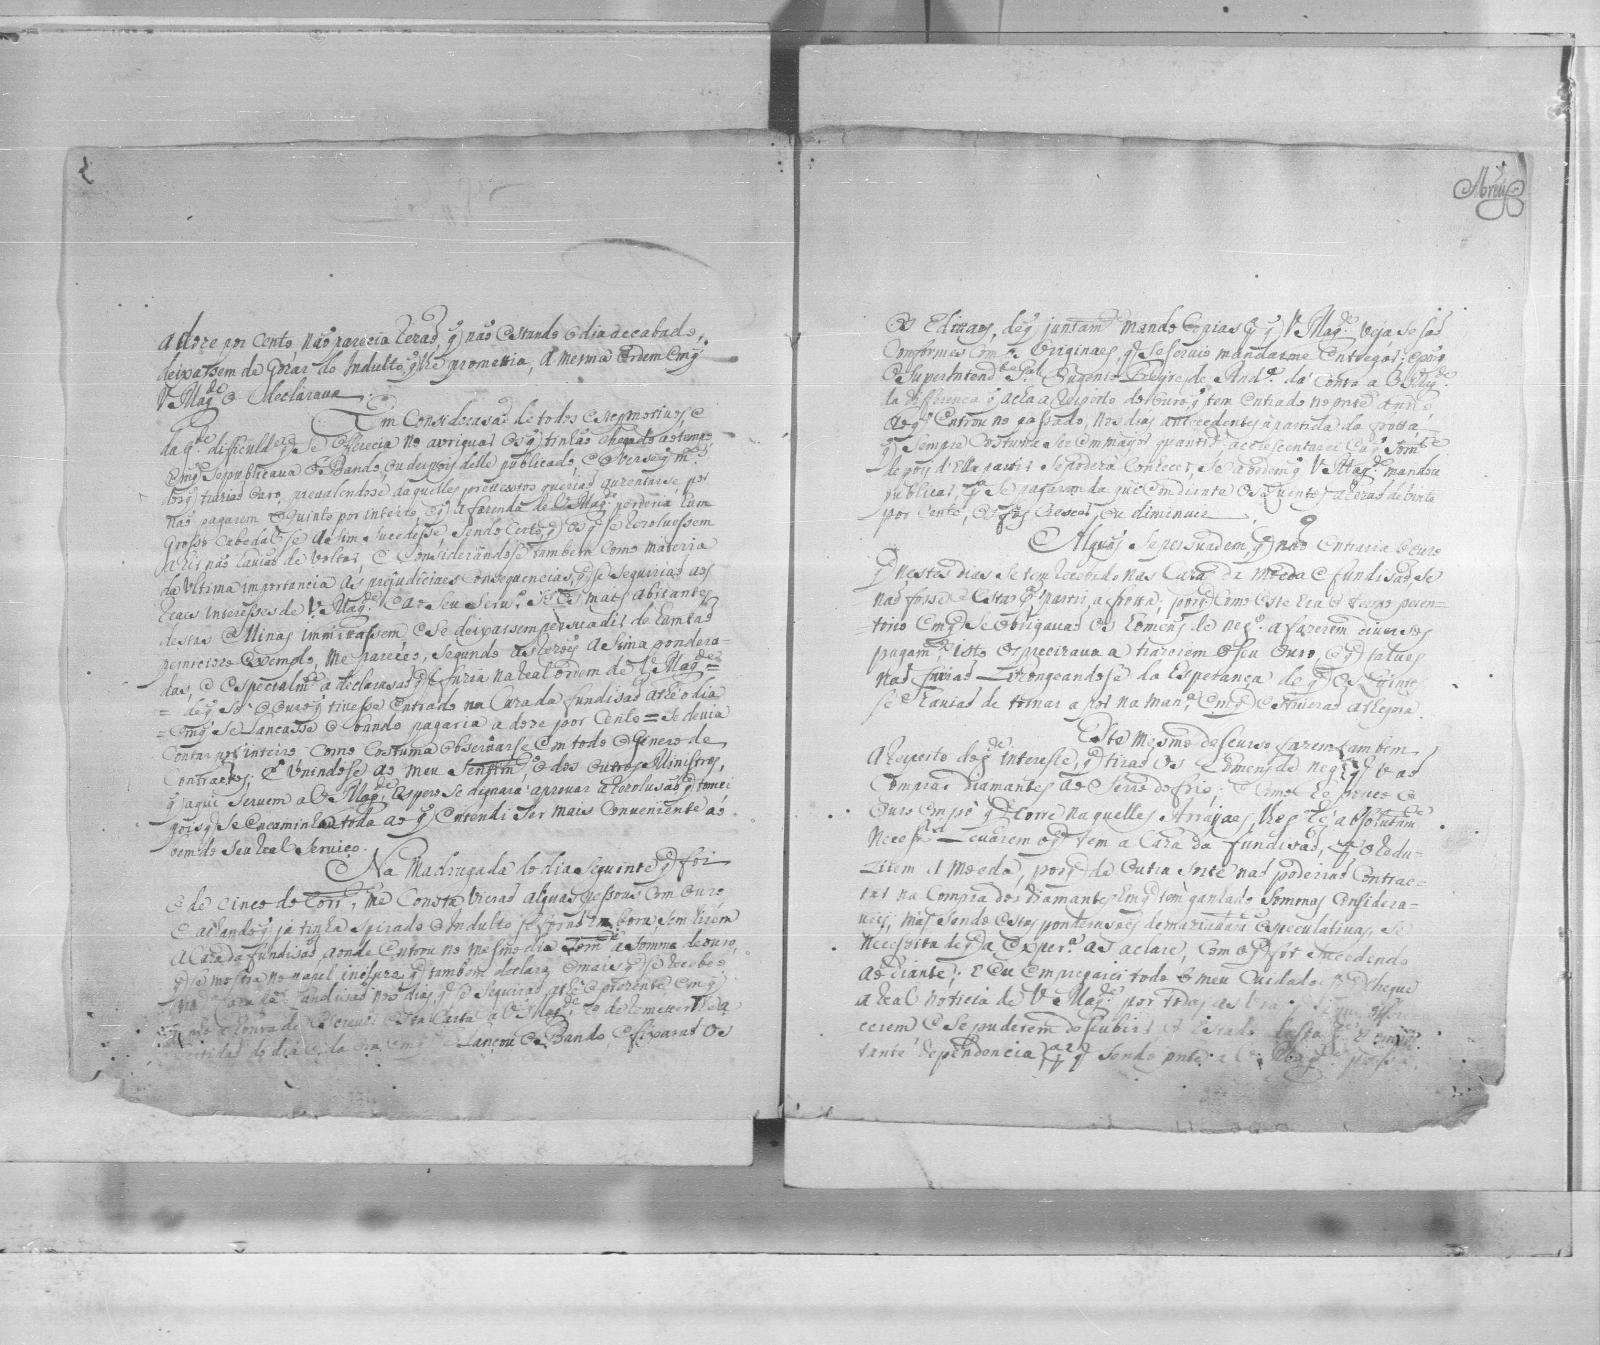 Abreu
a doze por cento, não parecia rezão q̃ não estando o dia accabado,
deixassem de gozar do Indulto, q̃ lhe promettia, a mesma ordem em q̃
V. Mag.de o declarava.
Em Consideração de todos estes motivos, e
da g.de difficuld.e q̃ se offerecia no avriguar os q̃ tinhão chegado a tempo,
em q̃ se publicava o Bando, ou despois delle publicado, e o verse q̃ m.tos
dos q̃ trarião ouro, prevalendose daquelles pretextos querião auzentarse por
não pagarem o Quinto por inteiro, e q̃ a fazenda de V. Mag.de perderia hum
grosso Cabedal, se asim sucedesse, sendo certo, q̃ os q̃ se rezoluessem
a hir não havião de voltar, e Considerandose tambem como materia
da ultima importancia as prejudiciaes consequencias, q̃ se seguirião aos
reaes interesses de V. Mag.de e ao seu serv.o se os mais abitantes
destas Minas immitassem e se deixassem persuadir de tamto
pernicioso exemplo, me pareceo, segundo as rezoes asima pondera=
das, e especialm.te a declarasão q̃ se fazia na real ordem de V. Mag.de =
= de q̃ só o ouro q̃ tivesse entrado na Caza da fundisão athe o dia
= em q̃ se lancasse o bando pagaria a doze por cento = se devia
contar por inteiro como costuma observarse em todo o genero de
contractos; E Unindose ao meu sentim.to o dos outros Ministros,
q̃ aqui servem a V. Mag.de, espero se dignará aprovar a rezolusão q̃ tomei
pois q̃ se encaminha toda ao q̃ entendi ser mais conveniente ao
bem do seu real serviço.
Na Madrugada do dia seguinte q̃ foi
o de cinco do corr.te, me consta vierão algũas pessoas com ouro
e achando q̃ já tinha spirado o Indulto, se forão embora, sem hirem
a Caza da fundisão aonde entrou no mesmo dia som.te a somma de ouro,
q̃ se mostra no papel incluzo, q̃ tambem declara o mais q̃ se recebeo
na d.a Caza de fundisão nos dias q̃ se seguirão athe o prezente, em q̃
a honra de escrever esta Carta a V. Mag.de, e de remetter lhe a
certidão do dia e da ora, em q̃ se Lançou o Bando, e fixarão os
os Edittaes, de q̃ juntam.te mando copias p.a q̃ V. Mag.de veja se são
conformes com os originaes, q̃ se servio mandarme entregar; e porq̃
o Superintend.te g.al Eugenio Freyre de And.a dá conta a V. Mag.de
da differença q̃ acha a respeito do ouro q̃ tem entrado no prez.te anno,
ao q̃ entrou no passado, nos dias antecedentes á partida da frotta
q̃ sempre costuma ser em mayor quantid.e acrescentarei eu q̃ som.te
depois d'ella partir se poderá conhecer, se a ordem q̃ V. Mag.de mandou
publicar, p.a se pagarem daqui em diante os Quintos a rezão de vinte
por cento, os faz crescer, ou diminuir.
Alguns se persuadem, q̃ não entraria o ouro
q̃ nestes dias se tem recebido nas Cazas da Moeda e fundisão se
não fosse o estar p.a partir a frotta; porq̃ como este era o tempo peren=
torio em q̃ se obrigavão os homens de neg.o a fazerem diversos
pagam.tos, isto os precizava a trazerem o seu ouro, e q̃ talves
não farião Lizongeandose da esperança de q̃ os Quintos
se havião de tornar a por na man.ra em q̃ estiverão athegora.
Este mesmo descurso fazem tambem
a respeito do g.de interesse, q̃ tirão os homens de neg.o q̃ vão
comprar diamantes ao Serro do frio; e como he pouco o
ouro em pó q̃ corre naquelles Arrayaes, lhes he absolutam.te
necess.rio Levarem o q̃ tem a Caza da fundisão, p.a o redu=
zirem a moeda, porq̃ de outra sorte não poderião contrac=
tar na compra dos diamantes em q̃ tem ganhado sommas considera=
veis; mas sendo estas ponderasões demaziadam.te especulativas, se
necessita de q̃ a exper.a as aclare, com o q̃ for sucedendo
ao diante; e eu empregarei todo o meu cuidado p.a q̃ chegue
a real noticia de V. Mag.de por todas as vias q̃ se offere
cerem e se puderem descubrir o estado desta
tante dependencia p.a q̃ sendo prez.te a V. Mag.de possa